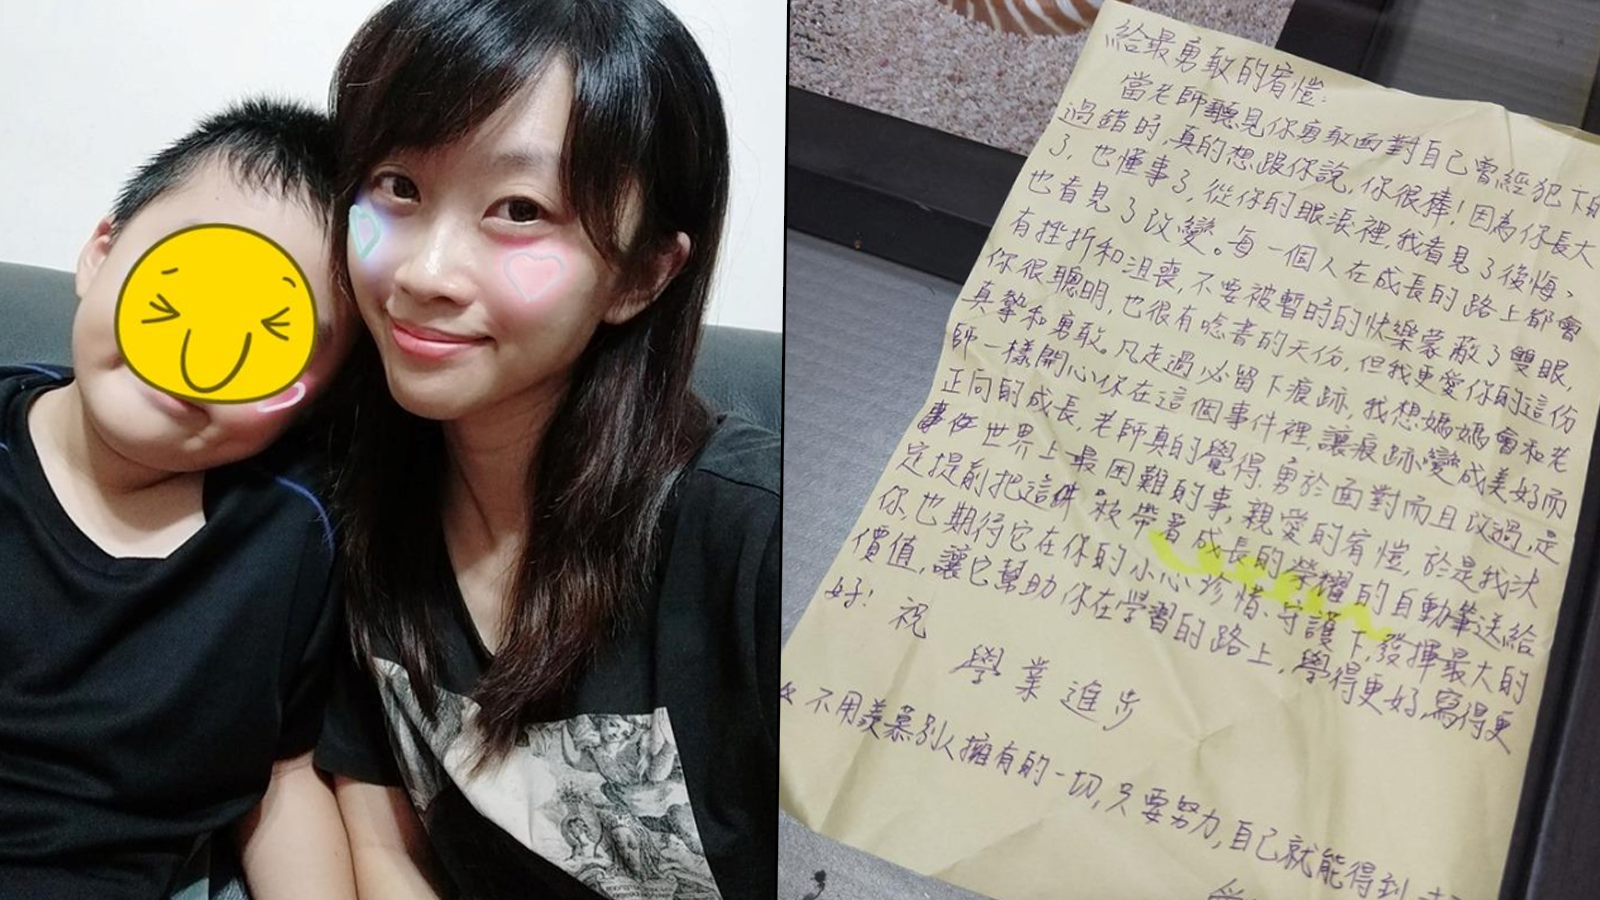 給最勇敢的宥愷：
當老師聽見你勇敢面對自己曾經犯下的
過錯時，真的想跟你說，你很棒！因為你長大
了，也懂事了，從你的眼淚裡，我看見了後悔、
也看見了改變。每一個人在成長的路上都會
有挫折和沮喪，不要被暫時的快樂蒙蔽了雙眼，
你很聰明，也很有唸書的天份，但我更愛你的這份
真摯和勇敢。凡走過必留下痕跡，我想媽媽會和老
師一樣開心你在這個事件裡，讓痕跡變成美好而
正向的成長，老師真的覺得，勇於面對而且改過，是
世界上最困難的事，親愛的宥愷，於是我決
定提前把這帶著成長的榮耀的自動筆送給
你，也期待它在你的小心珍惜、守護下，發揮最大的
價值，讓它幫助你在學習的路上，學得更好，寫得更
好！祝
學業進步
不用羨慕別人擁有的一切，只要努力，自己就能得到